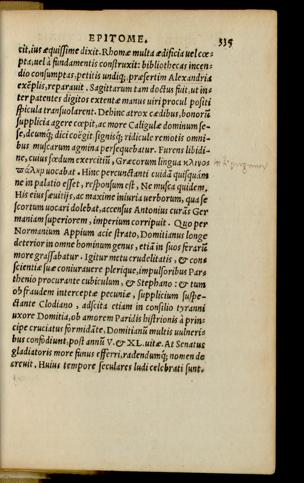 EPITOME. 335
cit, ius æquissime dixit. Rhomæ multa ædificia uel cœ-
pta, uel à fundamentis construxit: bibliothecas incen-
dio consumptas, petitis undiq;, præsertim Alexandriæ
exẽplis, reparauit. Sagittarum tam doctus fuit, ut in-
ter patentes digitos extentæ manus uiri procul positi
spicula transuolarent. Debinc atrox cædibus, honorũ
supplicia agere cœpit, ac more Caligulæ dominum se-
se, deumq; dici coëgit, signisq; ridicule remotis omni-
bus muscarum agmina persequebatur. Furens libidi-
ne, cuius fœdum exercitiũ, Græcorum lingua κλινοσ
πάλην uocabat. Hinc percunctanti cuidã quisquãm
ne in palatio esset, responsum est, Ne musca quidem.
His eius sæuitijs, ac maxime iniuria uerborum, qua se
scortum uocari dolebat, accensus Antonius curãs Ger
maniam superiorem, imperium corripuit. Quo per
Normanium Appium acie strato, Domitianus longe
deterior in omne hominum genus, etiã in suos ferarũ
more grassabatur. Igitur metu crudelitatis, & con-
scientiæ suæ coniurauere plerique, impulsoribus Par-
thenio procurante cubiculum, & Stephano: & tum
ob fraudem interceptæ pecuniæ, supplicium suspe-
ctante Clodiano, adscita etiam in consilio tyranni
uxore Domitia, ob amorem Paridis histrionis à prin-
cipe cruciatus formidãte. Domitianũ multis uulneri-
bus confodiunt, post annũ V. & XL. uitæ. At Senatus
gladiatoris more funus efferri, radendumq; nomen de
creuit. Huius tempore seculares ludi celebrati sunt.